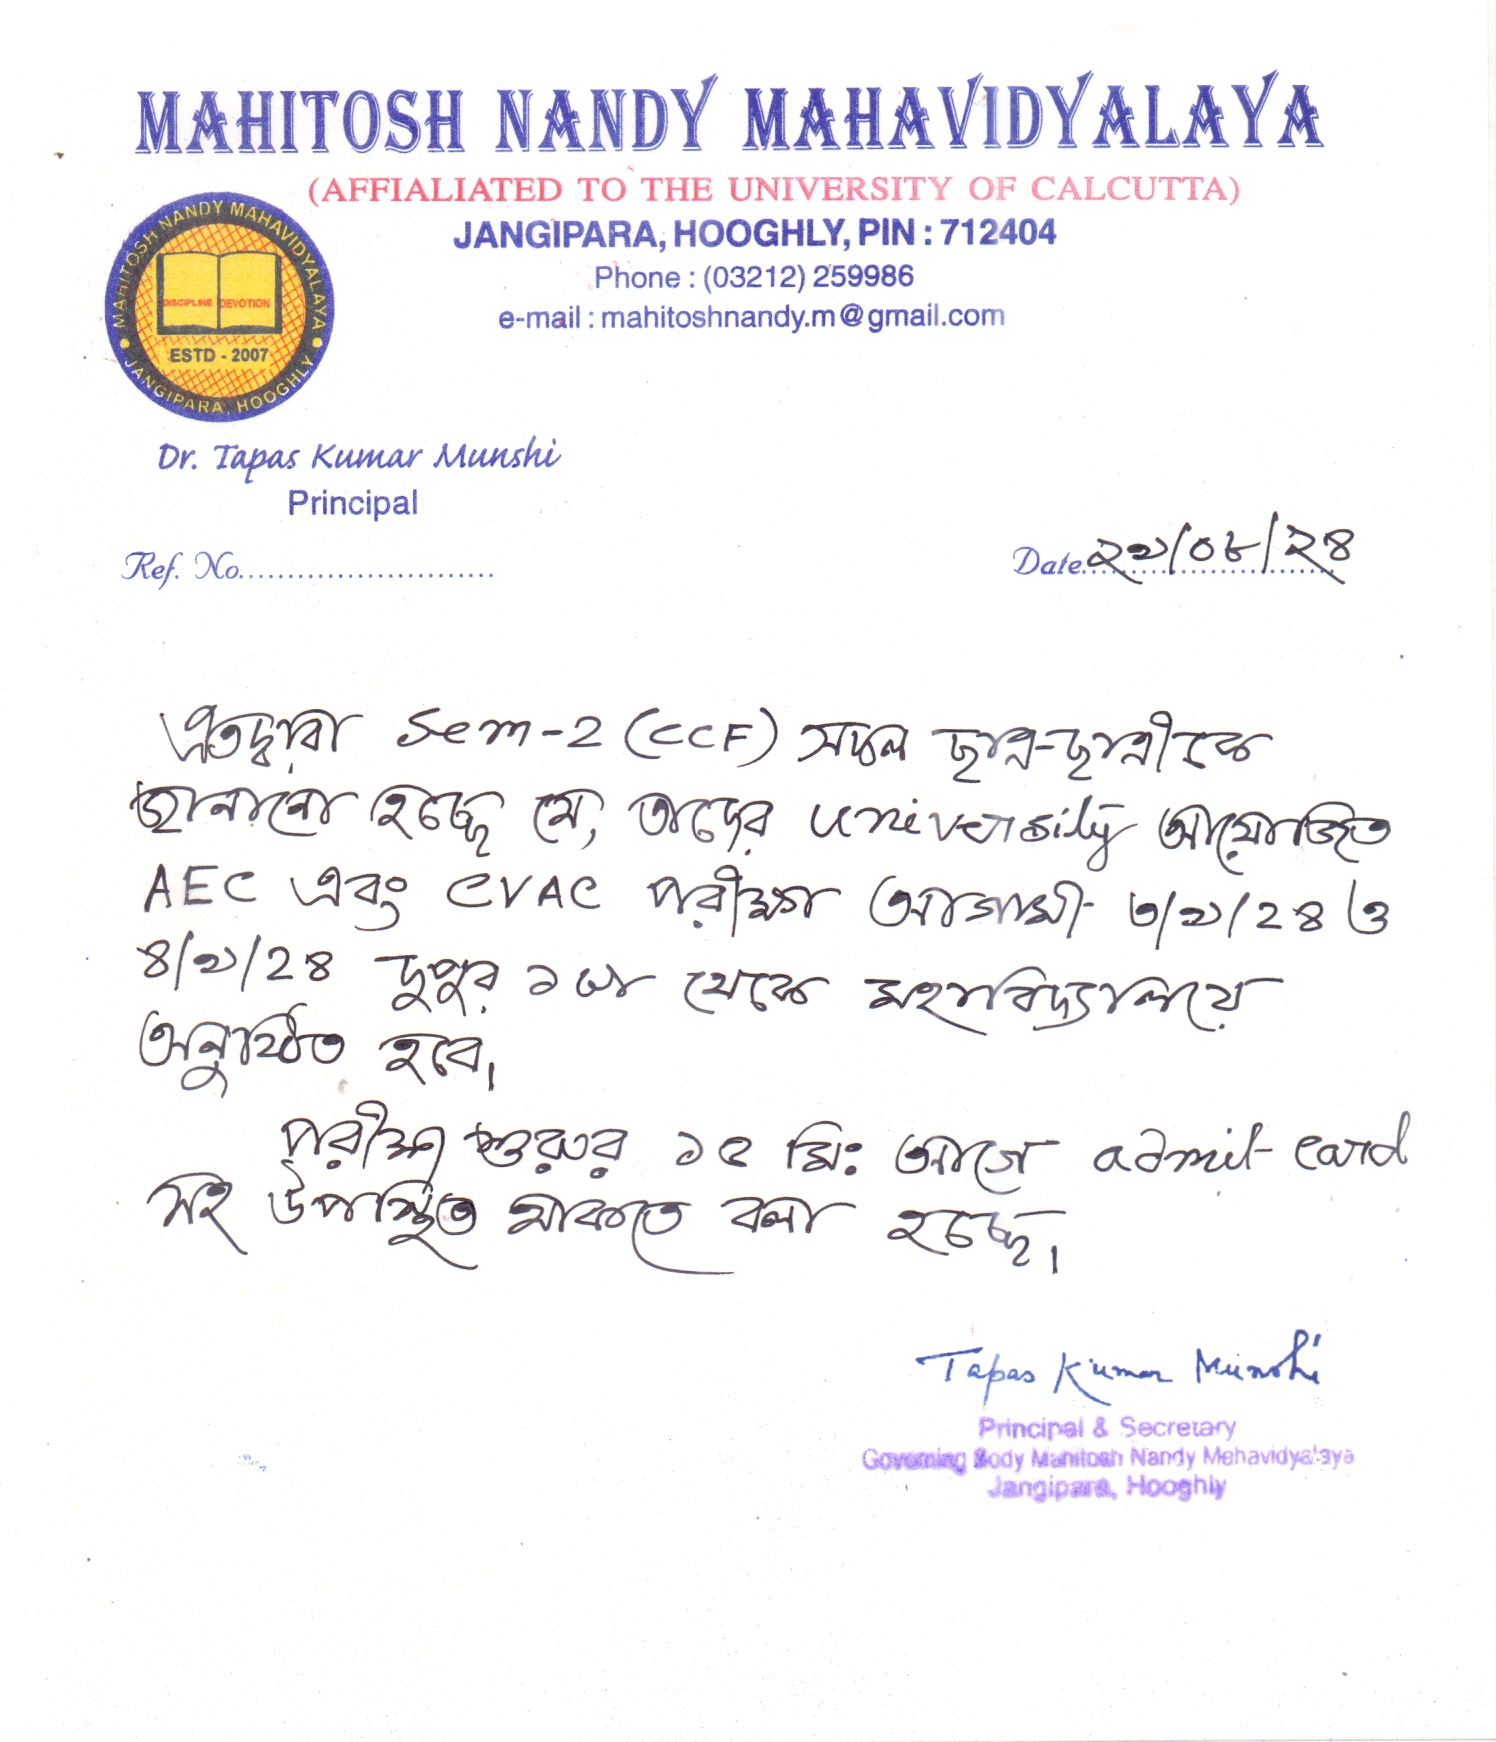 MAHITOSH NANDY MAHAVIDYALAYA
(AFFIALIATED TO THE UNIVERSITY OF CALCUTTA)
JANGIPARA, HOOGHLY, PIN : 712404
Phone : (03212) 259986
e-mail : mahitoshnandy.m@gmail.com
MAHITOSH NANDY MAHAVIDYALAYA
DISCIPLINE DEVOTION
ESTD - 2007
JANGIPARA, HOOGHLY
Dr. Tapas Kumar Munshi
Principal
Ref. No..........................
Date ২৯/০৮/২৪
এতদ্বারা Sem-2 (CCF) সকল ছাত্র-ছাত্রীকে
জানানো হচ্ছে যে, তাদের University আয়োজিত
AEC এবং CVAC পরীক্ষা আগামী ৩/৯/২৪ ও
৪/৯/২৪ দুপুর ১ টা থেকে মহাবিদ্যালয়ে
অনুষ্ঠিত হবে।
পরীক্ষা শুরুর ১৫ মিঃ আগে admit card
সহ উপস্থিত থাকতে বলা হচ্ছে।
Tapas Kumar Munshi
Principal & Secretary
Governing Body Mahitosh Nandy Mahavidyalaya
Jangipara, Hooghly